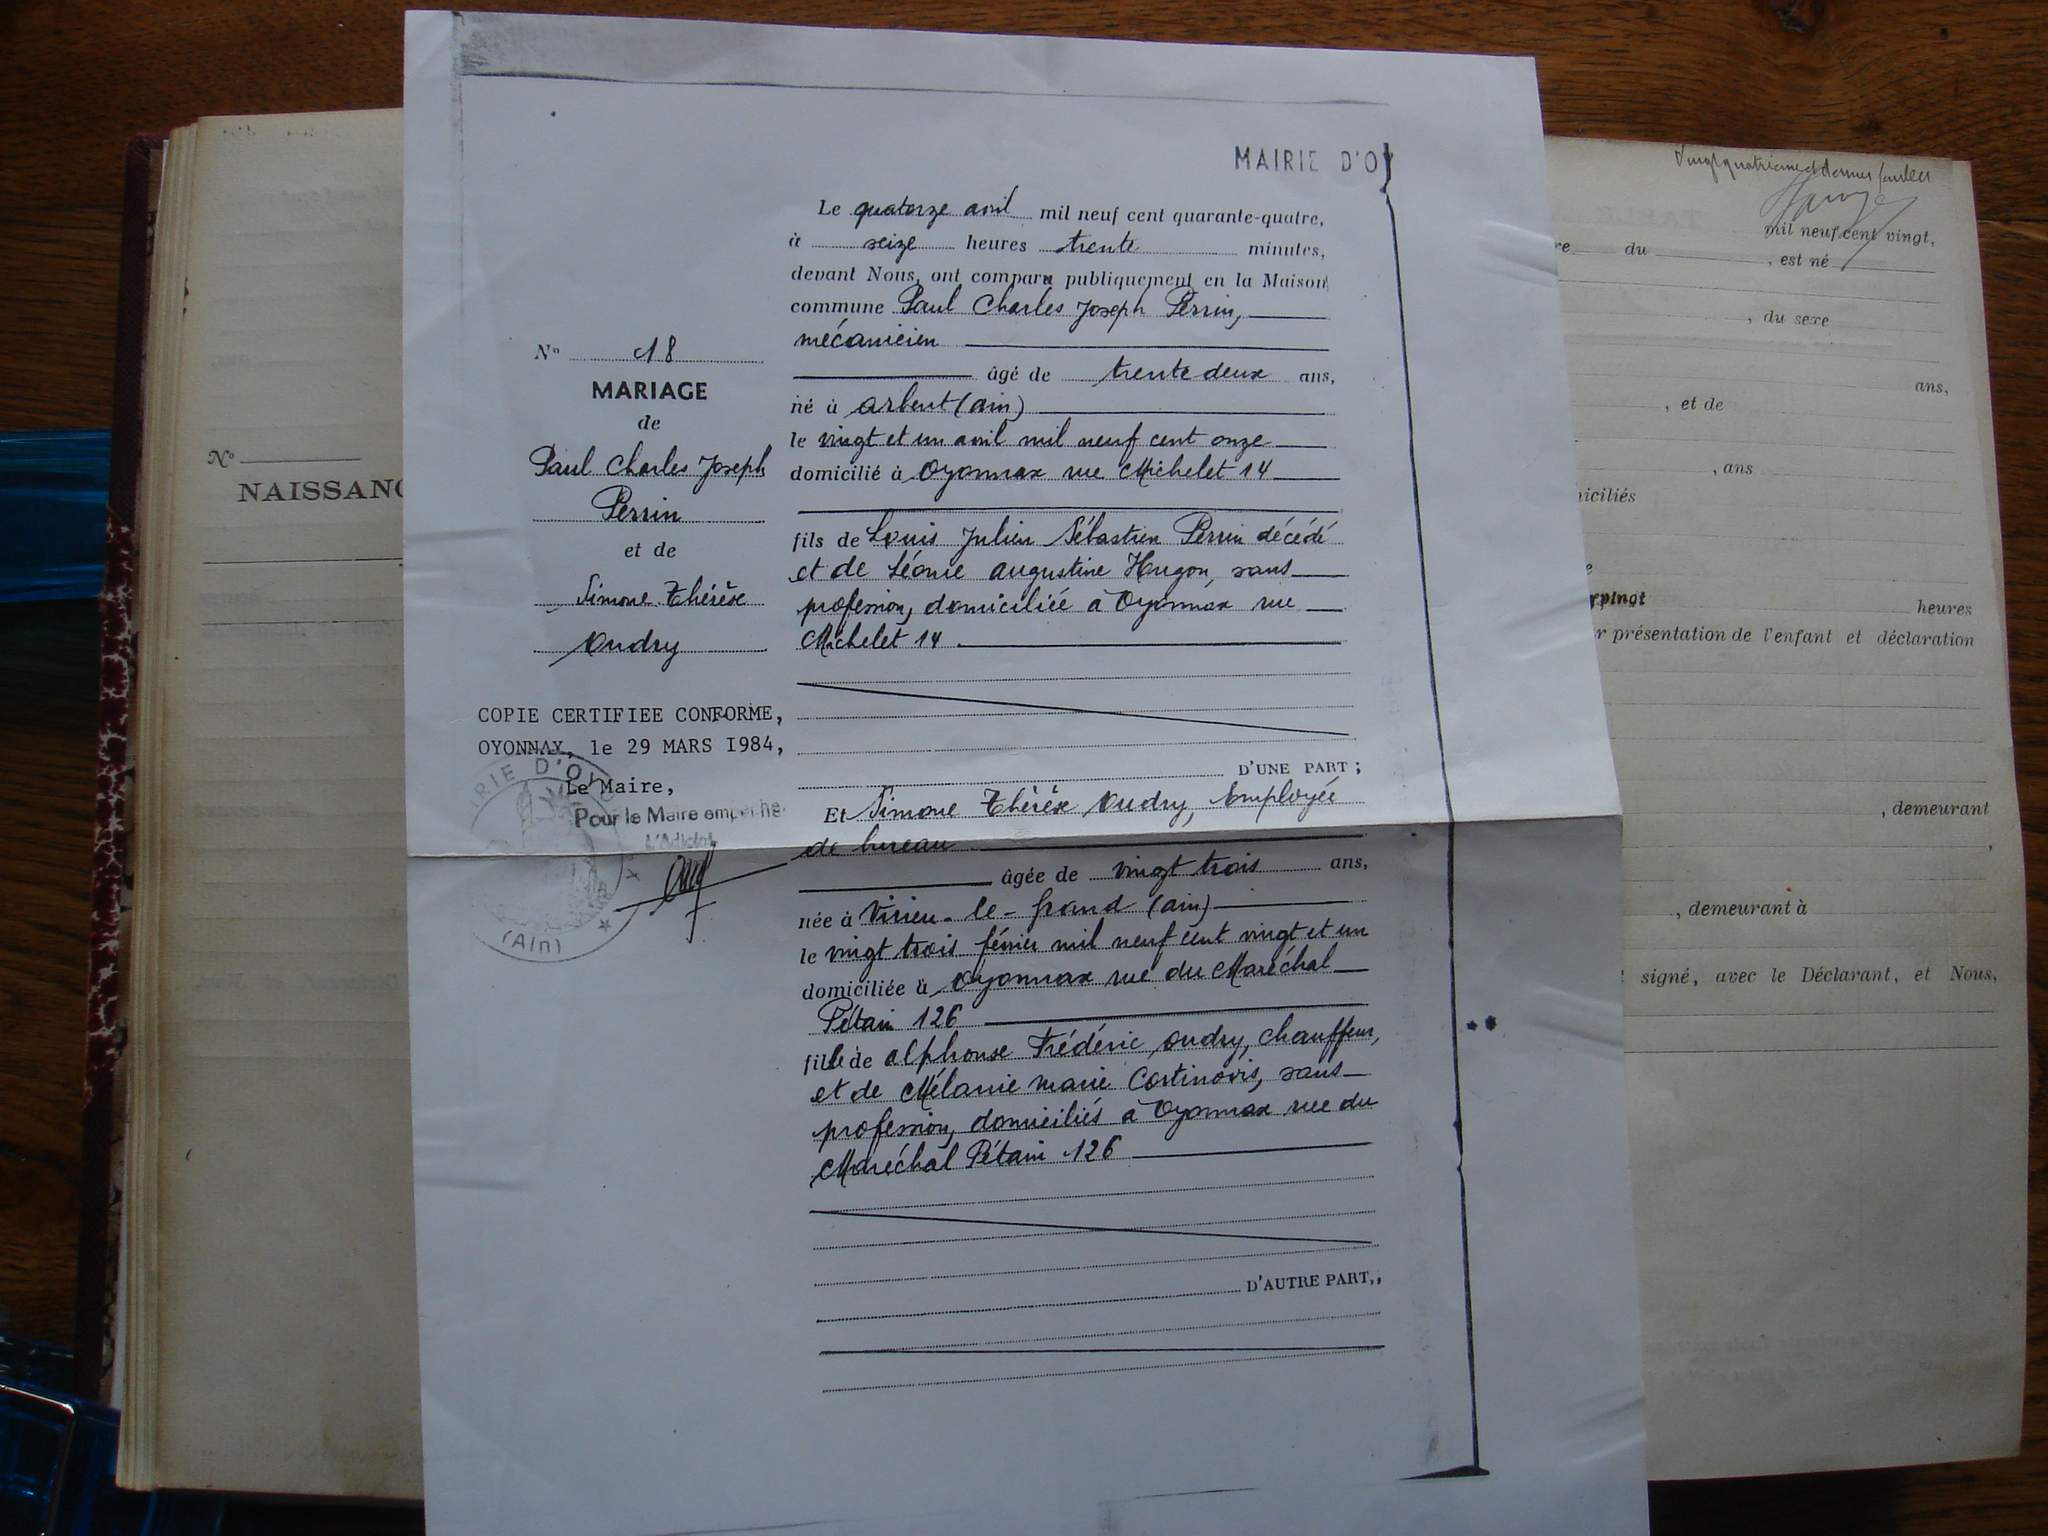 MAIRIE D'OY
Le quatorze avril mil neuf cent quarante-quatre,
à seize heures trente minutes,
devant Nous, ont comparu publiquement en la Maison
commune Paul Charles Joseph Perrin,
mécanicien
âgé de trente deux ans,
né à Arbent (Ain)
le vingt et un avril mil neuf cent onze
domicilié à Oyonnax rue Michelet 14
fils de Louis Julien Sébastien Perrin décédé
et de Léonie Augustine Hugon, sans
profession, domiciliée à Oyonnax rue
Michelet 14
D'UNE PART ;
Et Simone Thérèse Oudry, Employée
de bureau
âgée de vingt trois ans,
née à Virieu-le-Grand (Ain)
le vingt trois février mil neuf cent vingt et un
domiciliée à Oyonnax rue du Maréchal
Pétain 126
fille de Alphonse Frédéric Oudry, chauffeur,
et de Mélanie Marie Cortinovis, sans
profession, domiciliés à Oyonnax rue du
Maréchal Pétain 126
D'AUTRE PART,,
N° 18
MARIAGE
de
Paul Charles Joseph
Perrin
et de
Simone Thérèse
Oudry
COPIE CERTIFIEE CONFORME,
OYONNAX, le 29 MARS I984,
Le Maire,
Pour le Maire empêché
L'Adjoint
MAIRIE D'OYO
(Ain)
N°
NAISSANC
Vingt quatrième et dernier feuillet
mil neuf cent vingt,
re du , est né
, du sexe
ans,
, et de
, ans
iciliés
heures
r présentation de l'enfant et déclaration
, demeurant
, demeurant à
signé, avec le Déclarant, et Nous,